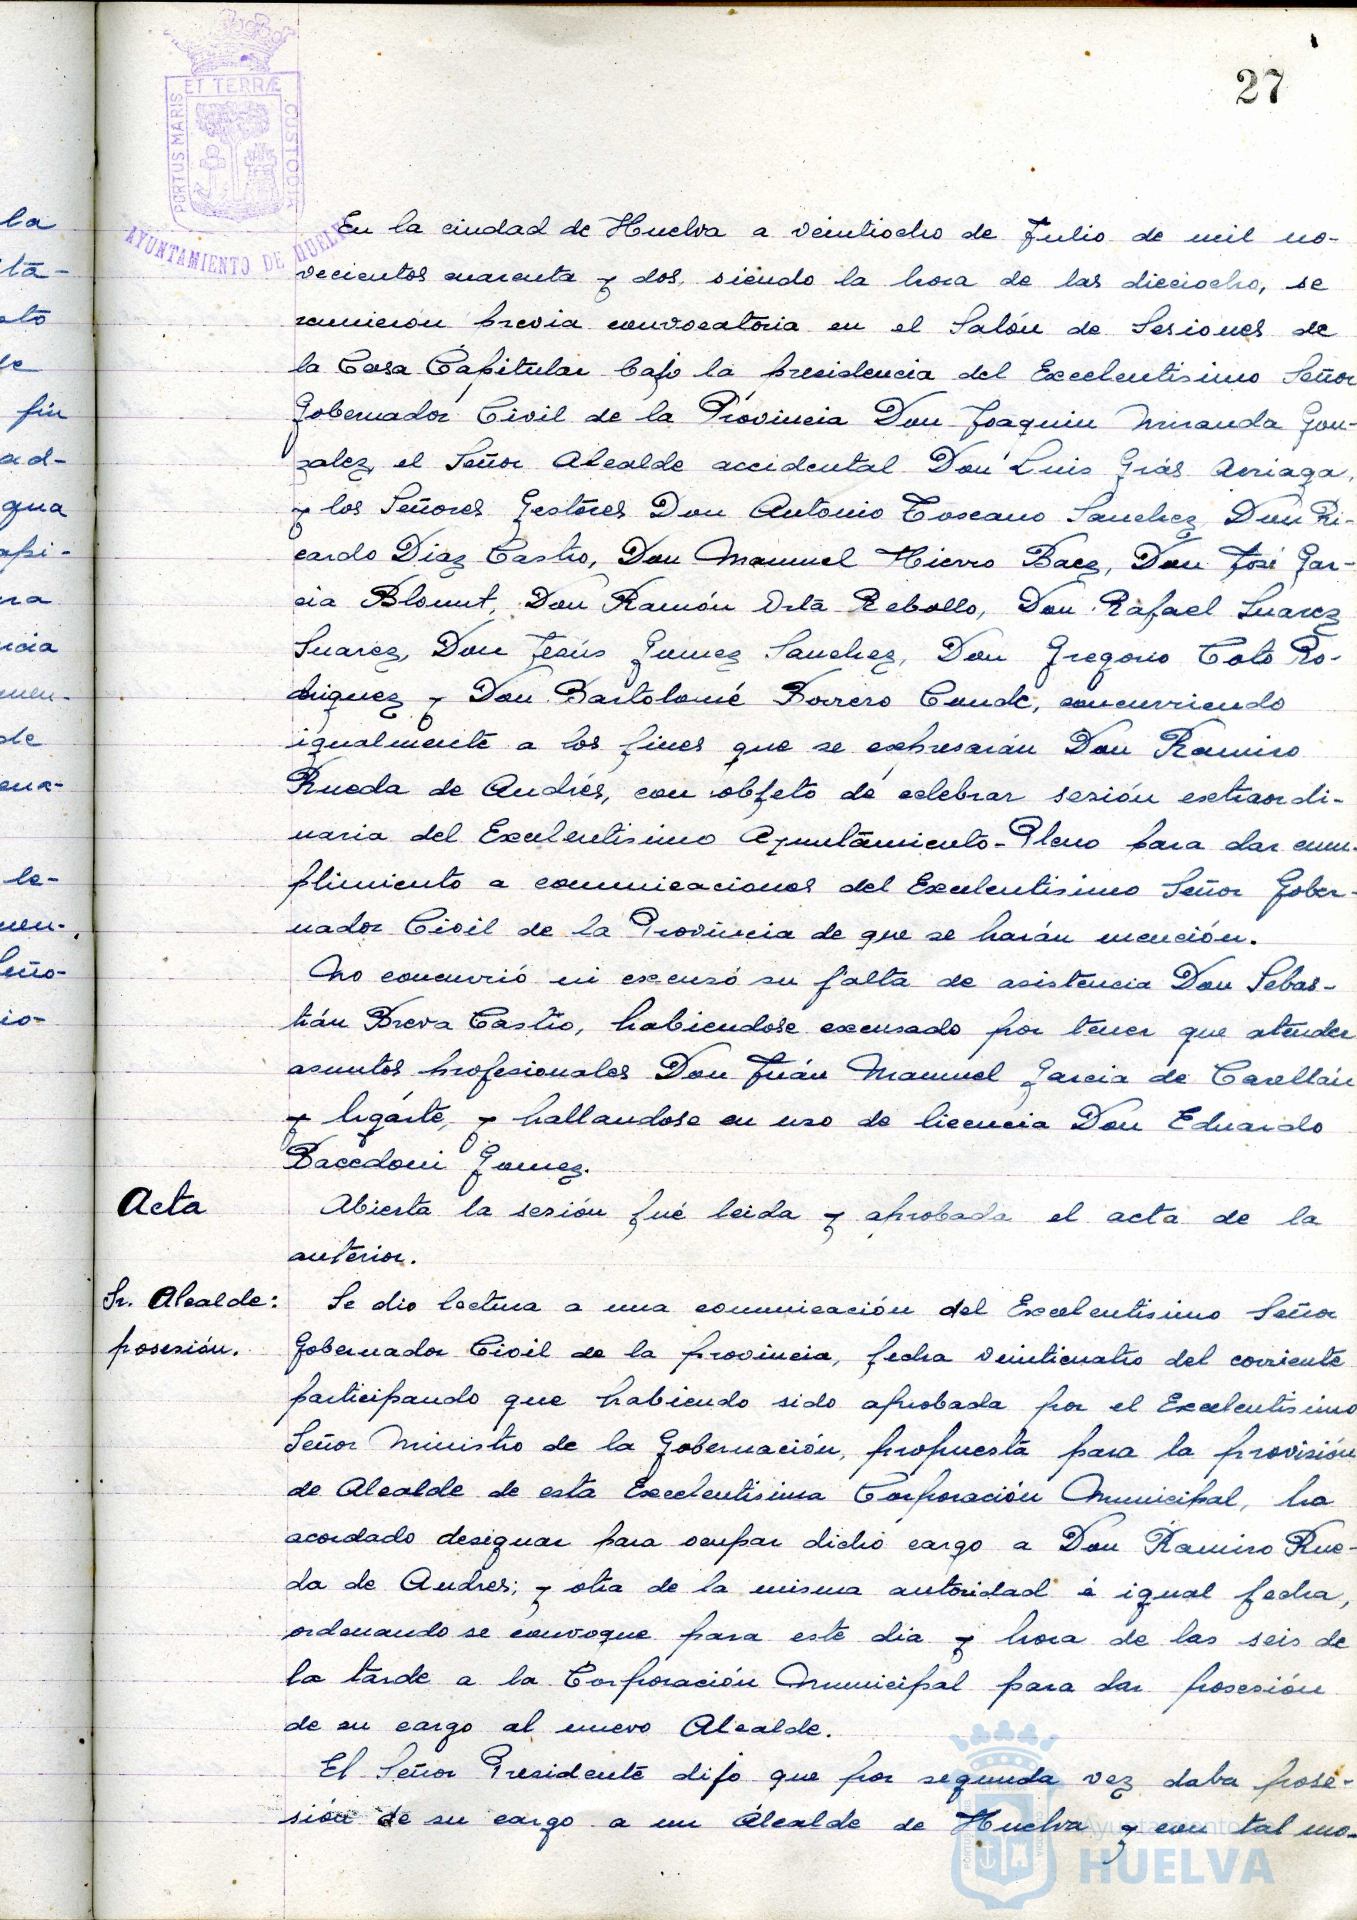 27
PORTUS MARIS ET TERRÆ CUSTODIA
AYUNTAMIENTO DE HUELVA
En la ciudad de Huelva a veintiocho de Julio de mil no-
vecientos cuarenta y dos, siendo la hora de las dieciocho, se
reunieron previa convocatoria en el Salón de Sesiones de
la Casa Capitular bajo la presidencia del Excelentisimo Señor
Gobernador Civil de la Provincia Don Joaquin Miranda Gon-
zalez, el Señor Alcalde accidental Don Luis Grás Arriaga,
y los Señores Gestores Don Antonio Toscano Sanchez, Don Ri-
cardo Diaz Castro, Don Manuel Hierro Baez, Don José Gar-
cia Blount, Don Ramón Orta Rebollo, Don Rafael Suarez
Suarez, Don Jesús Gomez Sanchez, Don Gregorio Coto Ro-
driguez y Don Bartolomé Borrero Conde, concurriendo
igualmente a los fines que se expresarán Don Ramiro
Rueda de Andrés, con objeto de celebrar sesión extraordi-
naria del Excelentisimo Ayuntamiento-Pleno para dar cum-
plimiento a comunicaciones del Excelentisimo Señor Gober-
nador Civil de la Provincia de que se harán mención.
No concurrió ni excusó su falta de asistencia Don Sebas-
tián Breva Castro, habiendose excusado por tener que atender
asuntos profesionales Don Juán Manuel Garcia de Carellán
y Ugarte, y hallandose en uso de licencia Don Eduardo
Bacedoni Gomez.
Acta
Abierta la sesión fué leida y aprobada el acta de la
anterior.
Sr. Alcalde:
posesión.
Se dio lectura a una comunicación del Excelentisimo Señor
Gobernador Civil de la provincia, fecha veinticuatro del corriente
participando que habiendo sido aprobada por el Excelentisimo
Señor Ministro de la Gobernación, propuesta para la provisión
de Alcalde de esta Excelentisima Corporación Municipal, ha
acordado designar para ocupar dicho cargo a Don Ramiro Rue-
da de Andres; y otra de la misma autoridad é igual fecha,
ordenando se convoque para este dia y hora de las seis de
la tarde a la Corporación Municipal para dar posesión
de su cargo al nuevo Alcalde.
El Señor Presidente dijo que por segunda vez daba pose-
sión de su cargo a un Alcalde de Huelva y con tal mo-
Ayuntamiento
HUELVA